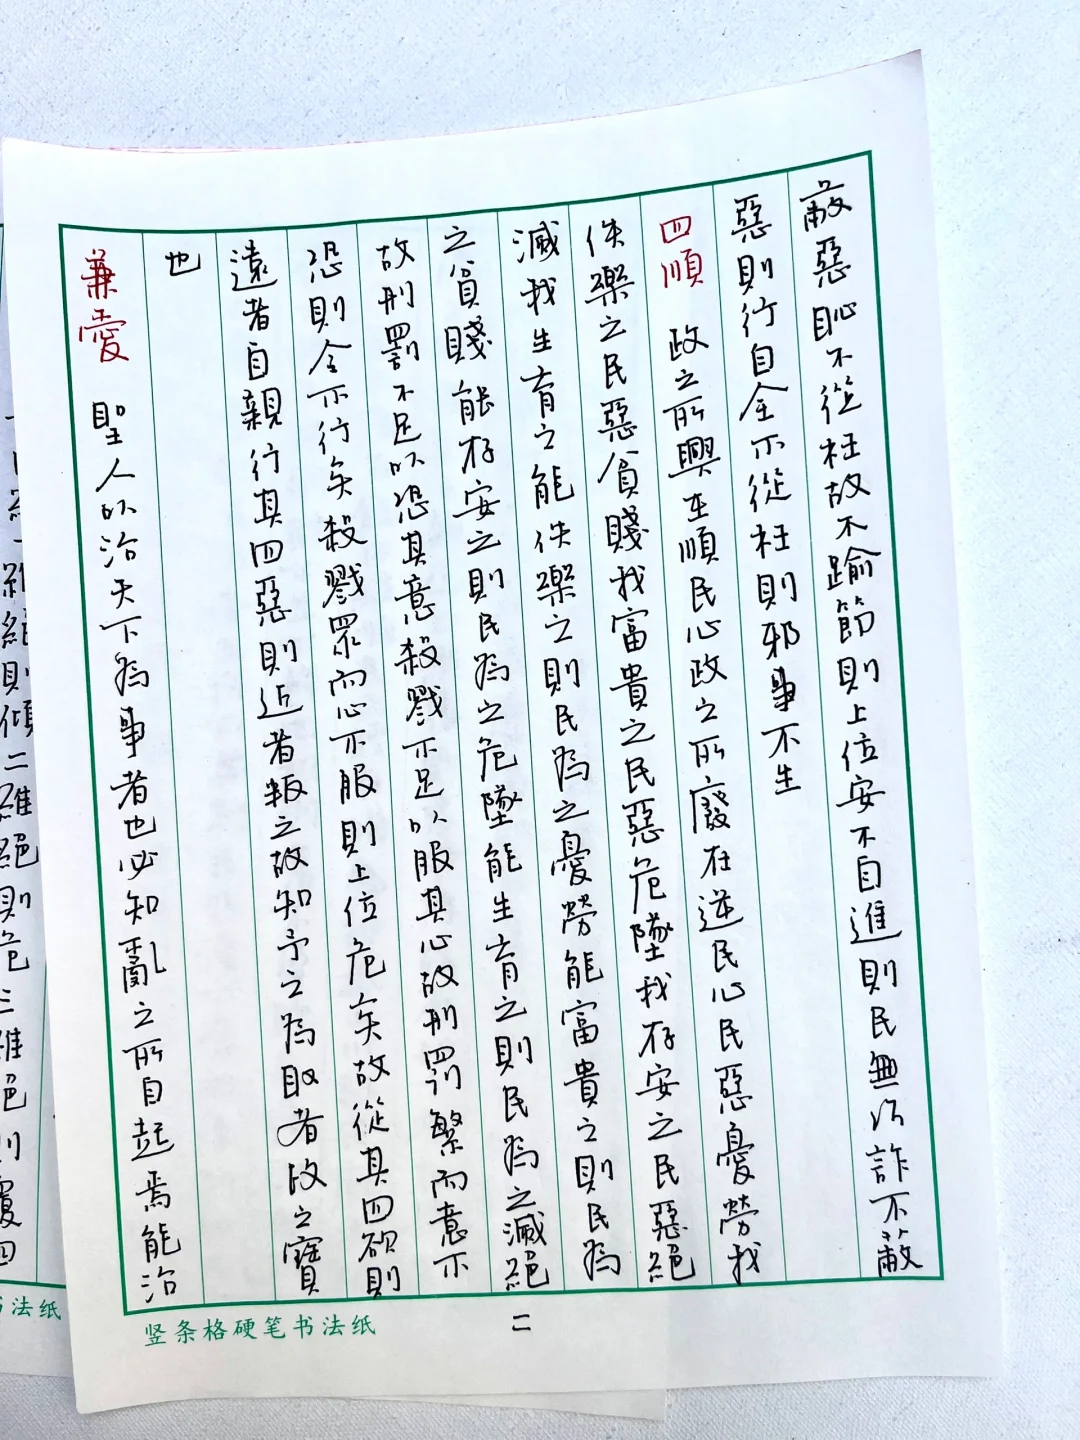 蔽惡恥不從枉故不踰節則上位安不自進則民無巧詐不蔽
惡則行自全不從枉則邪事不生
四順 政之所興在順民心政之所廢在逆民心民惡憂勞我
佚樂之民惡貧賤我富貴之民惡危墜我存安之民惡絕
滅我生育之能佚樂之則民為之憂勞能富貴之則民為
之貧賤能存安之則民為之危墜能生育之則民為之滅絕
故刑罰不足以恐其意殺戮不足以服其心故刑罰繁而意不
恐則令不行矣殺戮眾而心不服則上位危矣故從其四欲則
遠者自親行其四惡則近者叛之故知予之為取者政之寶
也
兼愛 聖人以治天下為事者也必知亂之所自起焉能治
竖条格硬笔书法纸
二
維絕則傾二維絕則危三維絕則覆四
法纸